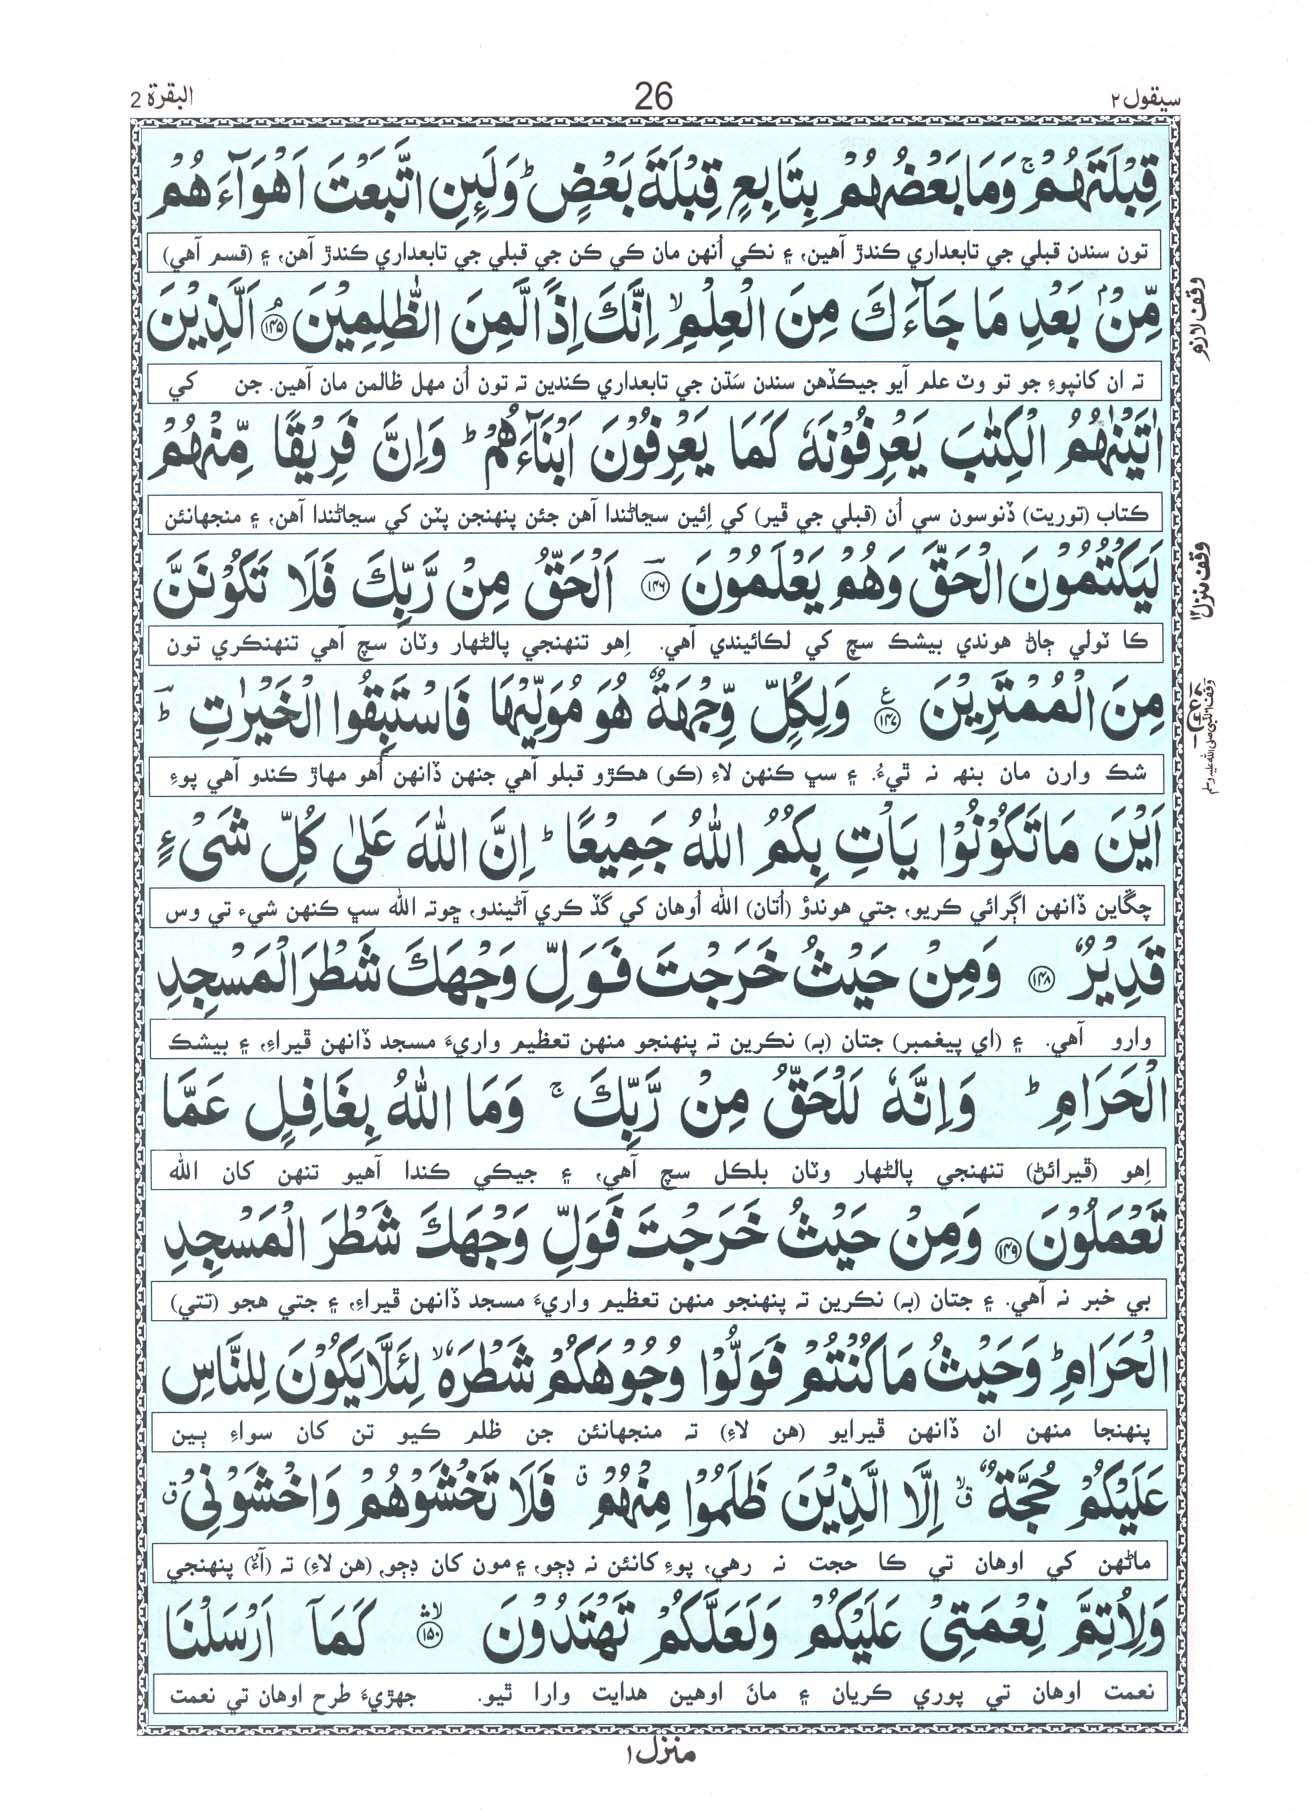 سيقول ٢
26
البقرة 2
قِبْلَتَهُمْ ۚ وَمَا بَعْضُهُمْ بِتَابِعٍ قِبْلَةَ بَعْضٍ ؕ وَلَئِنِ اتَّبَعْتَ اَهْوَآءَهُمْ
تون سندن قبلي جي تابعداري ڪندڙ آهين، ۽ نڪي اُنهن مان ڪي ڪن جي قبلي جي تابعداري ڪندڙ آهن، ۽ (قسم آهي)
مِّنْۢ بَعْدِ مَا جَآءَكَ مِنَ الْعِلْمِ ۙ اِنَّكَ اِذًا لَّمِنَ الظّٰلِمِيْنَ ۘ ﴿۱۴۵﴾ اَلَّذِيْنَ
وقف لازم
ته ان کانپوءِ جو تو وٽ علم آيو جيڪڏهن سندن سَڌن جي تابعداري ڪندين ته تون اُن مهل ظالمن مان آهين. جن کي
اٰتَيْنٰهُمُ الْكِتٰبَ يَعْرِفُوْنَهٗ كَمَا يَعْرِفُوْنَ اَبْنَآءَهُمْ ؕ وَاِنَّ فَرِيْقًا مِّنْهُمْ
ڪتاب (توريت) ڏنوسون سي اُن (قبلي جي ڦير) کي اِئين سڃاڻندا آهن جئن پنهنجن پٽن کي سڃاڻندا آهن، ۽ منجهانئن
لَيَكْتُمُوْنَ الْحَقَّ وَهُمْ يَعْلَمُوْنَ ﴿۱۴۶﴾ اَلْحَقُّ مِنْ رَّبِّكَ فَلَا تَكُوْنَنَّ
وقف منزل
ڪا ٽولي ڄاڻ هوندي بيشڪ سچ کي لڪائيندي آهي. اِهو تنهنجي پالڻهار وٽان سچ آهي تنهنڪري تون
مِنَ الْمُمْتَرِيْنَ ﴿۱۴۷﴾ وَلِكُلٍّ وِّجْهَةٌ هُوَ مُوَلِّيْهَا فَاسْتَبِقُوا الْخَيْرٰتِ ؕ
وقف النبي صلى الله عليه وسلم
شڪ وارن مان بنهه نه ٿيءُ. ۽ سڀ ڪنهن لاءِ (ڪو) هڪڙو قبلو آهي جنهن ڏانهن اُهو مهاڙ ڪندو آهي پوءِ
اَيْنَ مَا تَكُوْنُوْا يَاْتِ بِكُمُ اللّٰهُ جَمِيْعًا ؕ اِنَّ اللّٰهَ عَلٰى كُلِّ شَىْءٍ
چڱاين ڏانهن اڳرائي ڪريو، جتي هوندؤ (اُتان) الله اُوهان کي گڏ ڪري آڻيندو، ڇوته الله سڀ ڪنهن شيء تي وس
قَدِيْرٌ ﴿۱۴۸﴾ وَمِنْ حَيْثُ خَرَجْتَ فَوَلِّ وَجْهَكَ شَطْرَ الْمَسْجِدِ
وارو آهي. ۽ (اي پيغمبر) جتان (به) نڪرين ته پنهنجو منهن تعظيم واريءَ مسجد ڏانهن ڦيراءِ، ۽ بيشڪ
الْحَرَامِ ؕ وَاِنَّهٗ لَلْحَقُّ مِنْ رَّبِّكَ ۚ وَمَا اللّٰهُ بِغَافِلٍ عَمَّا
اِهو (ڦيرائڻ) تنهنجي پالڻهار وٽان بلڪل سچ آهي، ۽ جيڪي ڪندا آهيو تنهن کان الله
تَعْمَلُوْنَ ﴿۱۴۹﴾ وَمِنْ حَيْثُ خَرَجْتَ فَوَلِّ وَجْهَكَ شَطْرَ الْمَسْجِدِ
بي خبر نه آهي. ۽ جتان (به) نڪرين ته پنهنجو منهن تعظيم واريءَ مسجد ڏانهن ڦيراءِ، ۽ جتي هجو (تتي)
الْحَرَامِ ؕ وَحَيْثُ مَا كُنْتُمْ فَوَلُّوْا وُجُوْهَكُمْ شَطْرَهٗ ۙ لِئَلَّا يَكُوْنَ لِلنَّاسِ
پنهنجا منهن ان ڏانهن ڦيرايو (هن لاءِ) ته منجهانئن جن ظلم ڪيو تن کان سواءِ ٻين
عَلَيْكُمْ حُجَّةٌ ۙ اِلَّا الَّذِيْنَ ظَلَمُوْا مِنْهُمْ ۗ فَلَا تَخْشَوْهُمْ وَاخْشَوْنِىْ ۗ
ماڻهن کي اوهان تي ڪا حجت نہ رهي، پوءِ کانئن نہ ڊڄو، ۽ مون کان ڊڄو، (هن لاءِ) ته (آءٌ) پنهنجي
وَلِاُتِمَّ نِعْمَتِىْ عَلَيْكُمْ وَلَعَلَّكُمْ تَهْتَدُوْنَ ﴿۱۵۰﴾ كَمَآ اَرْسَلْنَا
نعمت اوهان تي پوري ڪريان ۽ مانَ اوهين هدايت وارا ٿيو. جهڙيءَ طرح اوهان تي نعمت
منزل ١